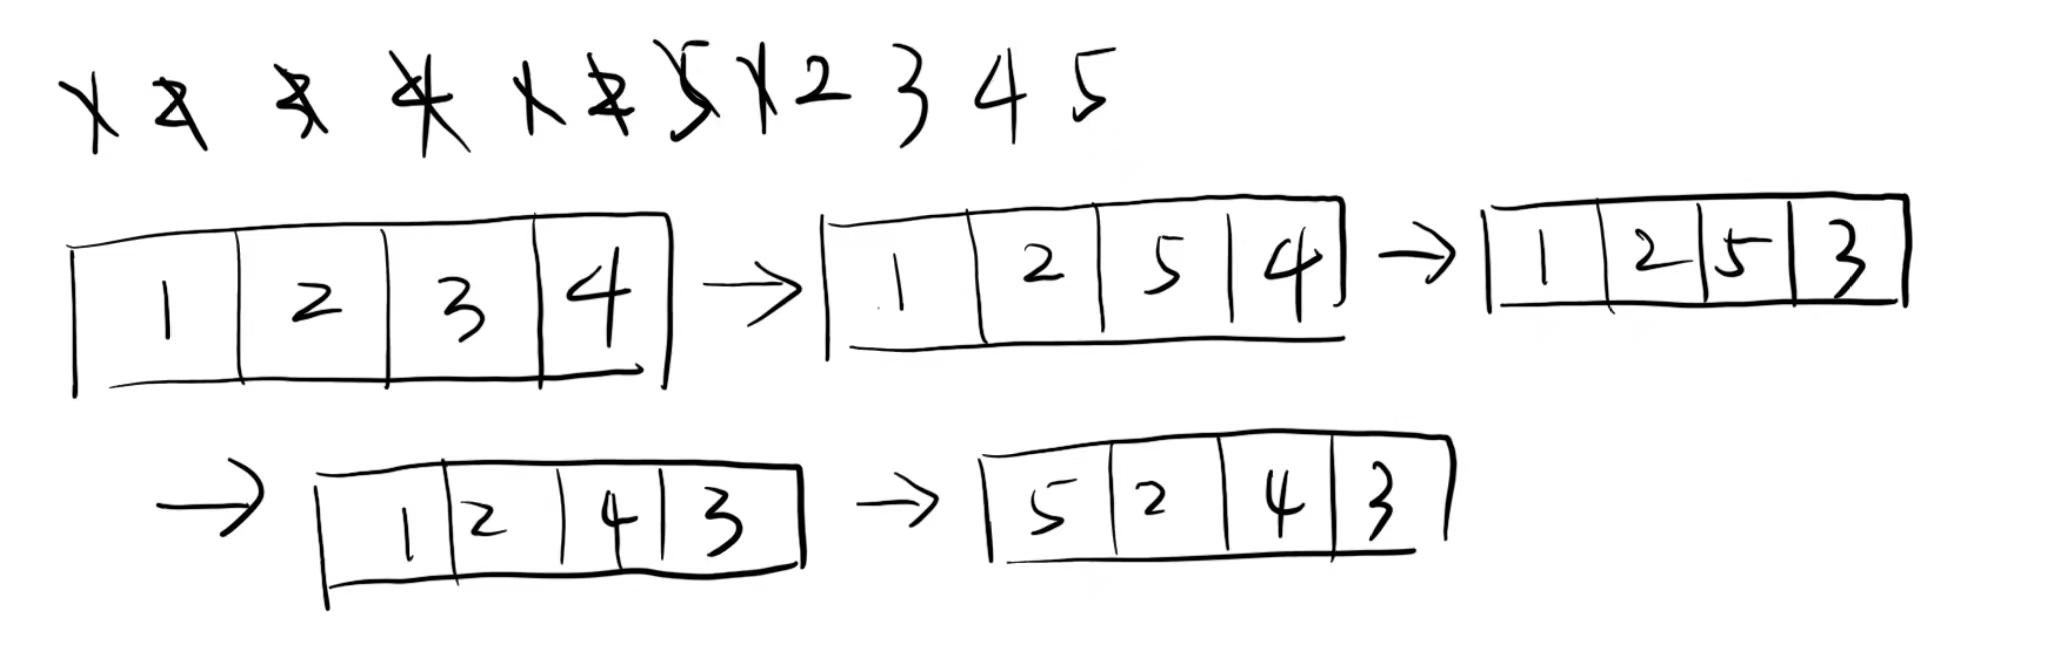 1 2 3 4 1 2 5 1 2 3 4 5
1 2 3 4 → 1 2 5 4 → 1 2 5 3
→ 1 2 4 3 → 5 2 4 3